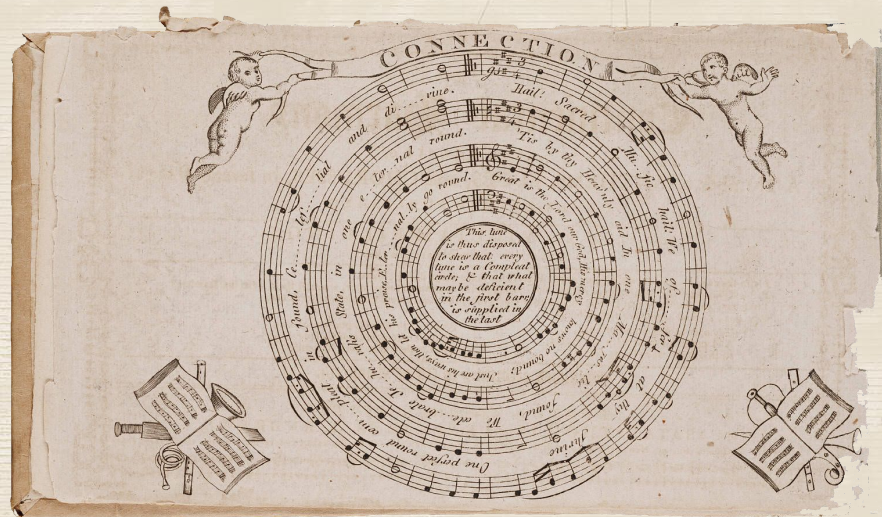 CONNECTION
Hail: Sacred Mu..sic hail: We at thy shrine
One perfect round com...pleat in found, Ce..les...tial and di....vine.
'Tis by thy Heav'nly aid In one
found, We cele...brate Je..ho...vah's State, in one e..ter..nal round.
Great is the Lord our God, his mercy knows no bound;
Just are his ways, then let his praise, E..ter...nal..ly go round.
This tune
is thus disposed
to shew that every
tune is a Compleat
circle; & that what
may be deficient
in the first barr,
is supplied in
the last